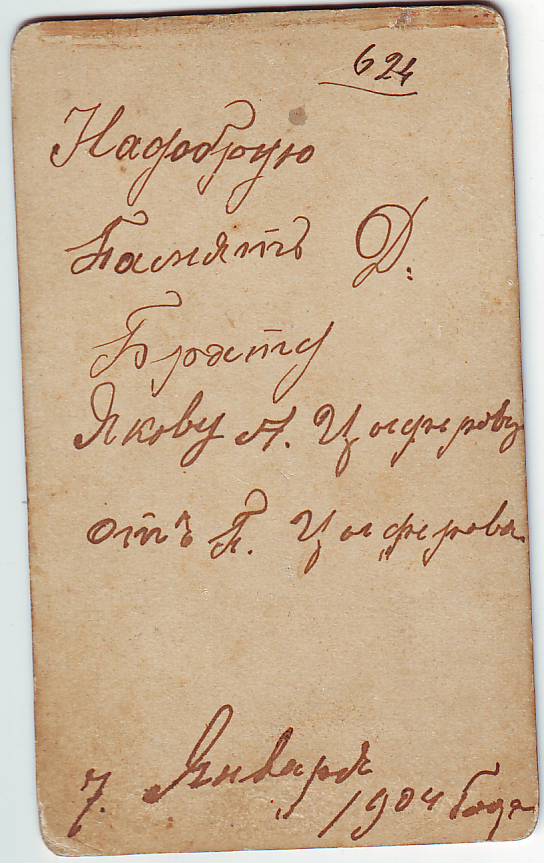 624
Надобрую
Память Д.
Брату
Якову А. Цыферову
отъ П. Цыферова
7. Января
1904 Года